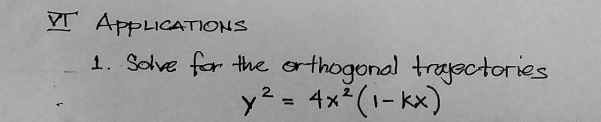 VI APPLICATIONS
1. Solve for the orthogonal trajectories
y² = 4x²(1-kx)